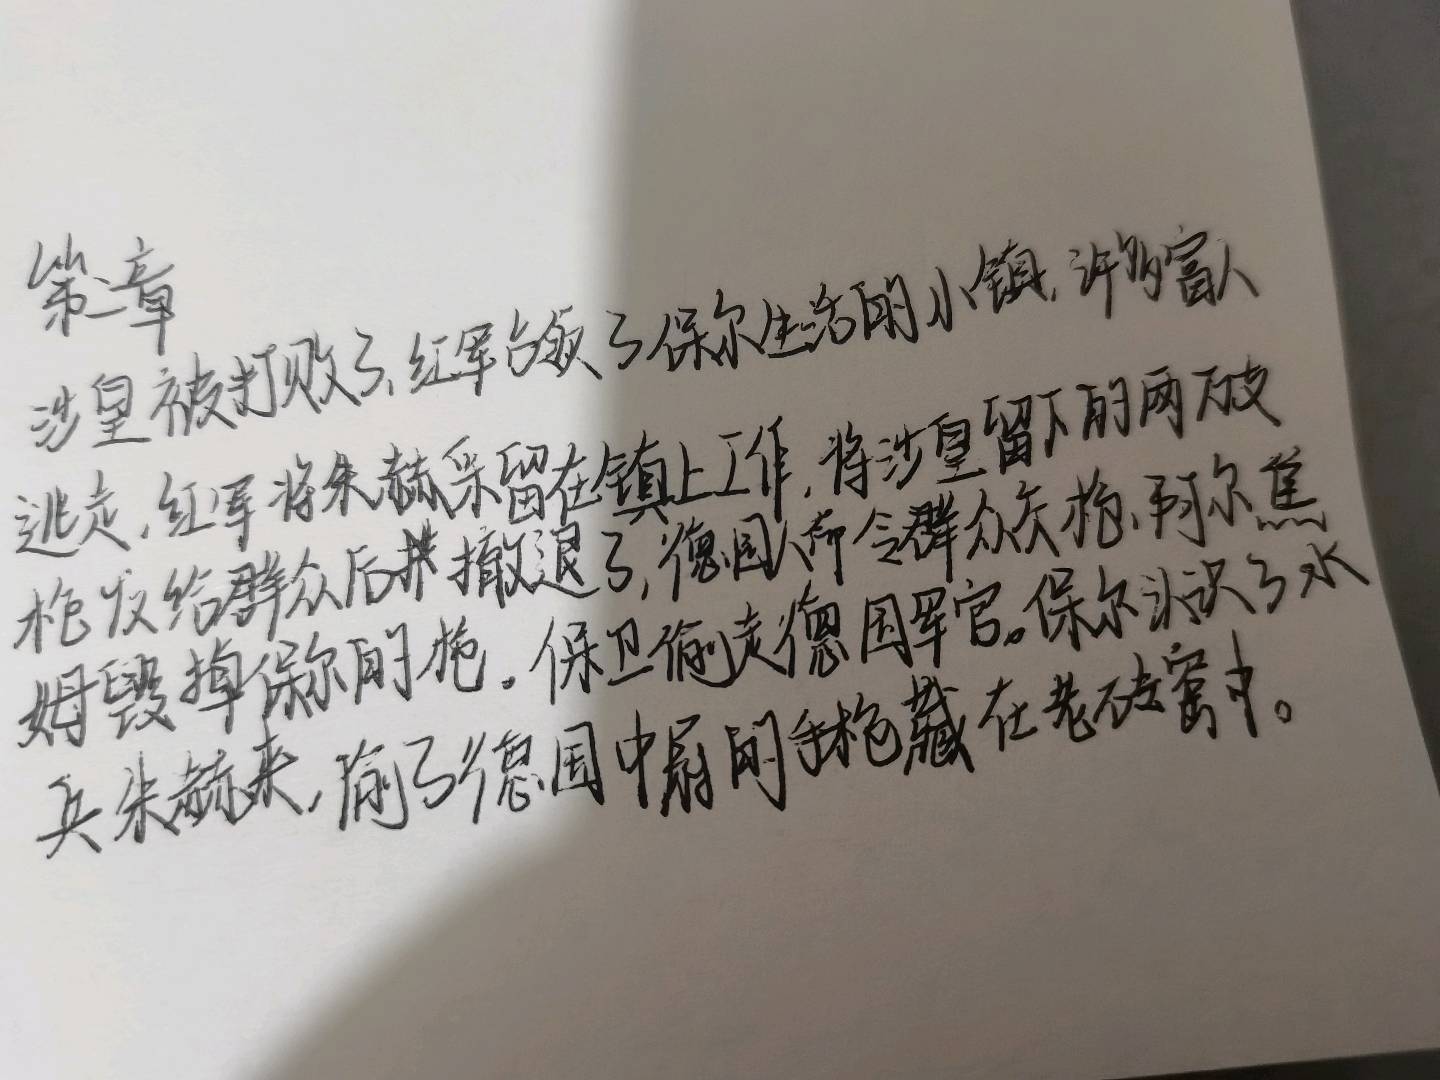 第二章
沙皇被打败了,红军占领了保尔生活的小镇,许多富人
逃走,红军将朱赫来留在镇上工作,将沙皇留下的两万支
枪发给群众后并撤退了,德国人命令群众交枪,阿尔焦
姆毁掉保尔的枪。保卫偷走德国军官。保尔认识了水
兵朱赫来,偷了德国中尉的手枪藏在老砖窑中。